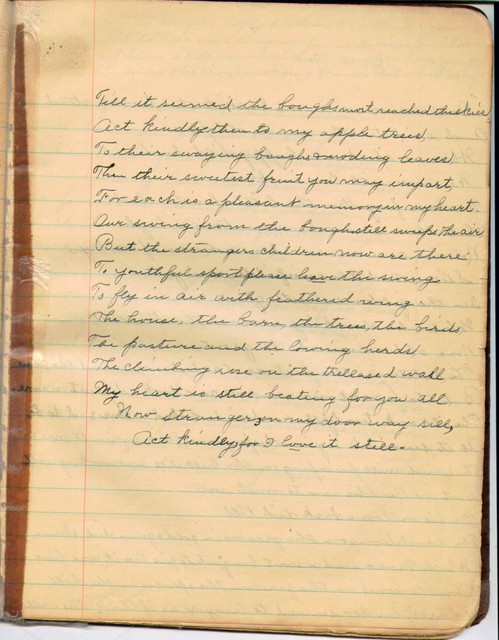 Till it seemed the boughs most reached the skies
Act kindly then to my apple trees,
To their swaying boughs & noding leaves
Then their sweetest fruit you may impart,
For each is a pleasant memory in my heart.
Our swing from the bough still sweeps the air
But the strangers children now are there.
To youthful sport please leave the swing
To fly in air with feathered wing.
The house, the barn, the trees, the birds
The pasture and the lowing herds
The climbing rose on the trellased wall
My heart is still beating for you all
Now stranger, on my door way sill,
Act kindly, for I love it still.